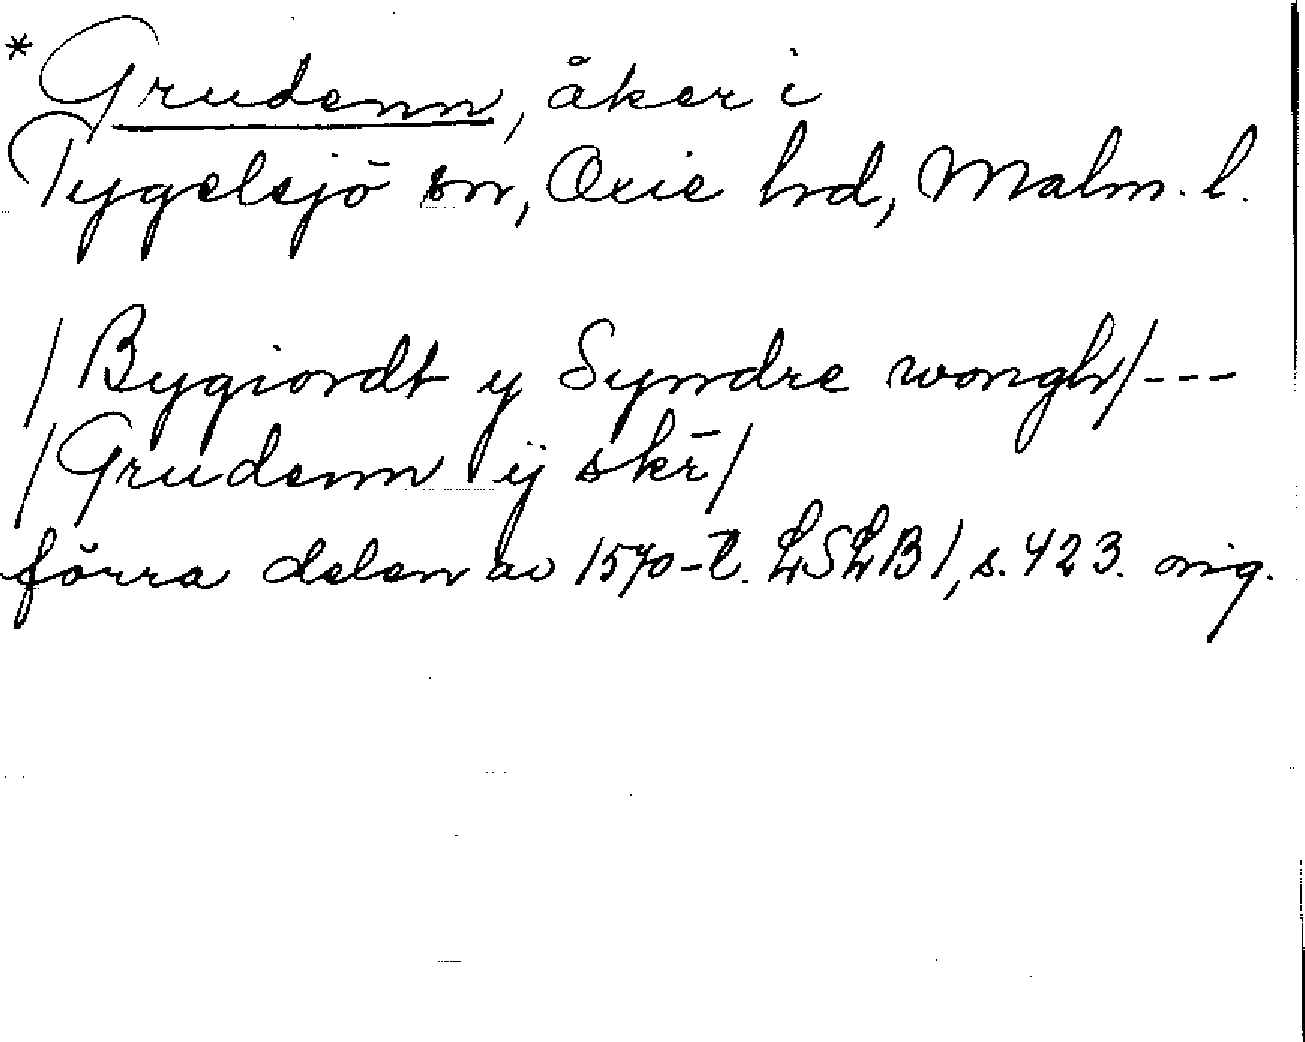 *Grudenn, åker i
Tygelsjö sn, Oxie hd, Malm. l.
/Bygiordt y Syndre wongh/---
/Grudenn ÿ skr̄/
förra delen av 1570-t. LSLB 1, s. 423. orig.